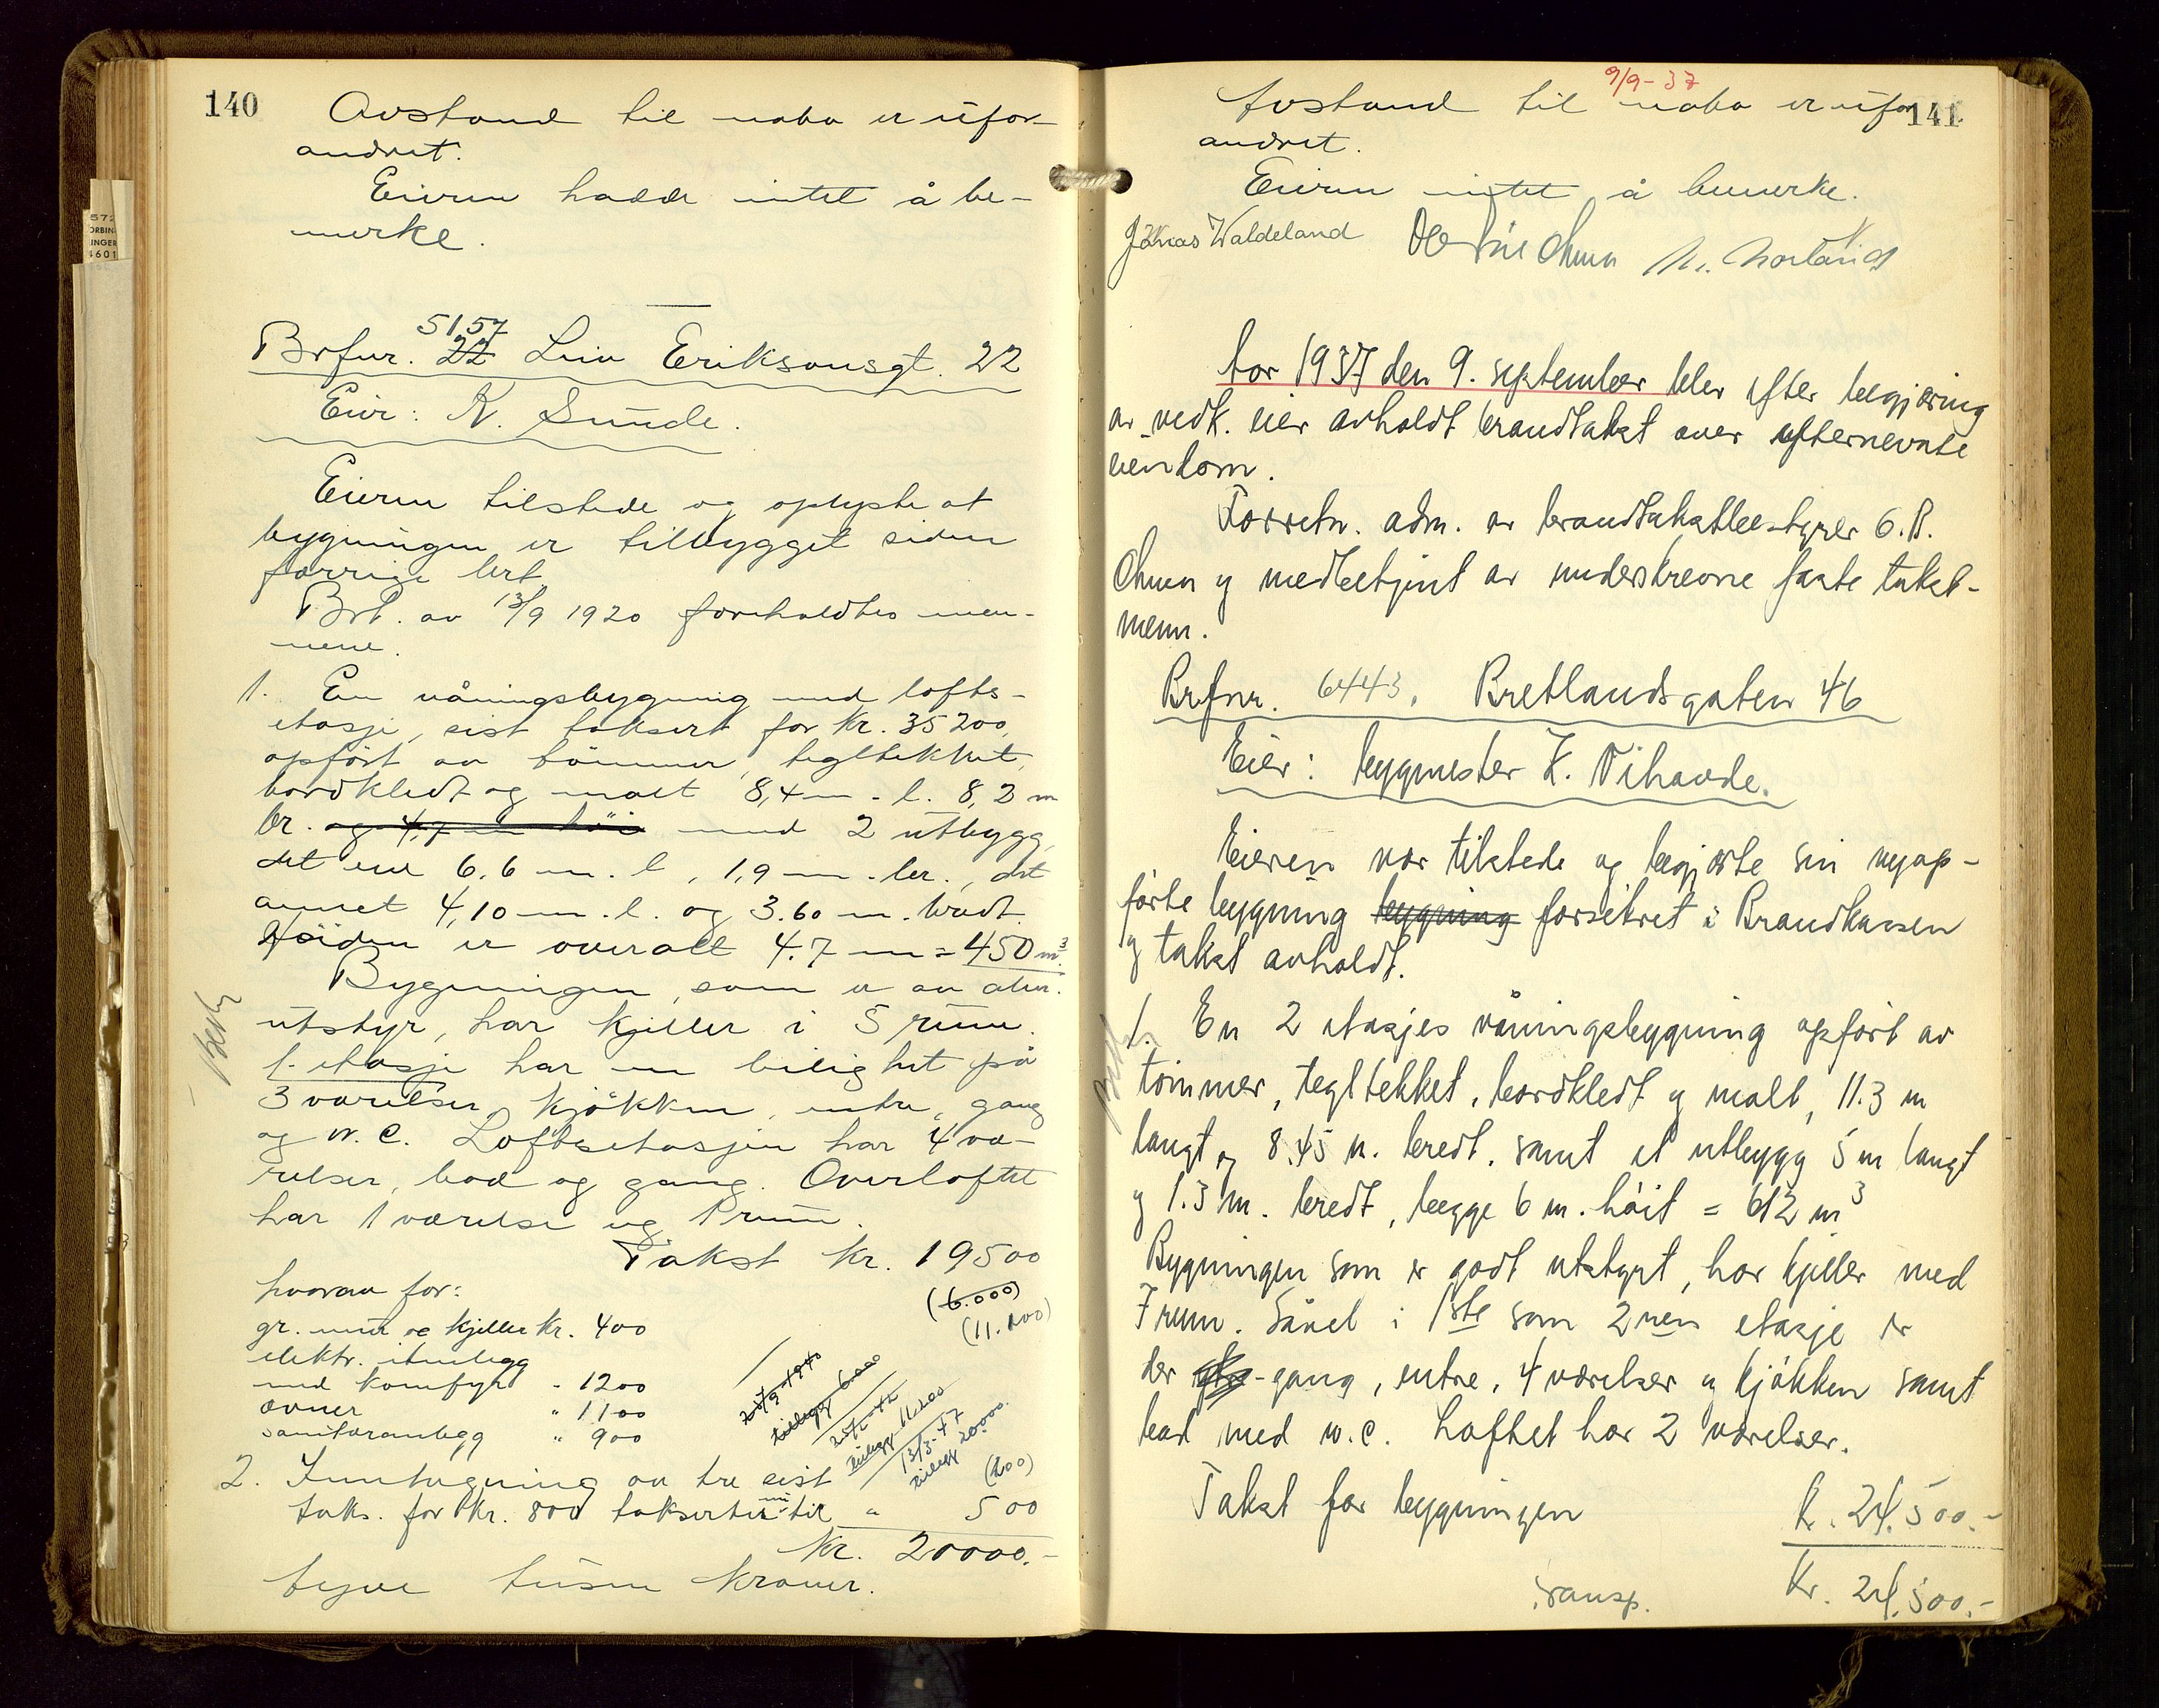 140
Avstand til nabo er ufor-
andret.
Eieren hadde intet å be-
merke.
5157
Brfnr. 22 Leiv Eriksonsgt. 22
Eier: K. Sunde.
Eieren tilstede og oplyste at
bygningen er tilbygget siden
forrige brt.
Brt. av 13/9 1920 foreholdtes men-
nene.
1. En våningsbygning med lofts-
etasje, sist taksert for kr. 35200,
opført av tömmer, tegltekket,
bordkledt og malt 8,4 m. l. 8,2 m
br. og 4,7 m höi med 2 utbygg,
det ene 6.6 m. l, 1,9 m. br., det
annet 4,10 m. l. og 3.60 m. bredt.
Höiden er overalt 4.7 m = 450 m³.
Bygningen, som er av alm.
utstyr, har kjeller i 5 rum.
1. etasje har en beilighet på
3 værelser, kjökken, entre, gang
og W.C. Loftsetasjen har 4 væ-
relser, bod og gang. Overloftet
har 1 værelse og 1 rum.
Takst kr. 19500
hvorav for:
(6.000)
gr. mur og kjeller kr. 400
elektr. innlegg
med komfyr - 1200
ovner " 1100
sanitæranlegg " 900
tillegg 6.000
25/2-42
tillegg 11.200
13/3-47
tillegg 20.000.
2. Innhegning av tre sist
taks. for kr. 800 taksertes til " 500
kr. 20000.-
tyve tusen kroner.
9/9-37
141
Avstand til nabo er ufor-
andret.
Eieren intet å bemerke.
Jonas Waldeland
Aar 1937 den 9. september blev efter begjæring
av vedk. eier avholdt brandtakst over efternevnte
eiendom.
Forretn. adm. av brandtakstbestyrer O.B.
Omen og medbetjent av underskrevne faste takst-
menn.
Brfnr. 6443. Bretlandsgaten 46
Eier: bygmester K. Vihovde.
Eieren var tilstede og begjærte sin nyop-
förte bygning bygning forsikret i Brandkassen
og takst avholdt.
1. En 2 etasjes våningsbygning opfört av
tömmer, tegltekket, bordkledt og malt, 11.3 m
langt og 8.45 m. bredt, samt et utbygg 5 m langt
og 1.3 m. bredt, begge 6 m. höit = 612 m³
Bygningen som er godt utstyrt, har kjeller med
7 rum. Såvel i 1ste som 2nen etasje er
der gang, entre, 4 værelser og kjökken samt
bad med w.c. Loftet har 2 værelser.
Takst for bygningen
Kr. 24.500.-
Transp. Kr. 24.500.-